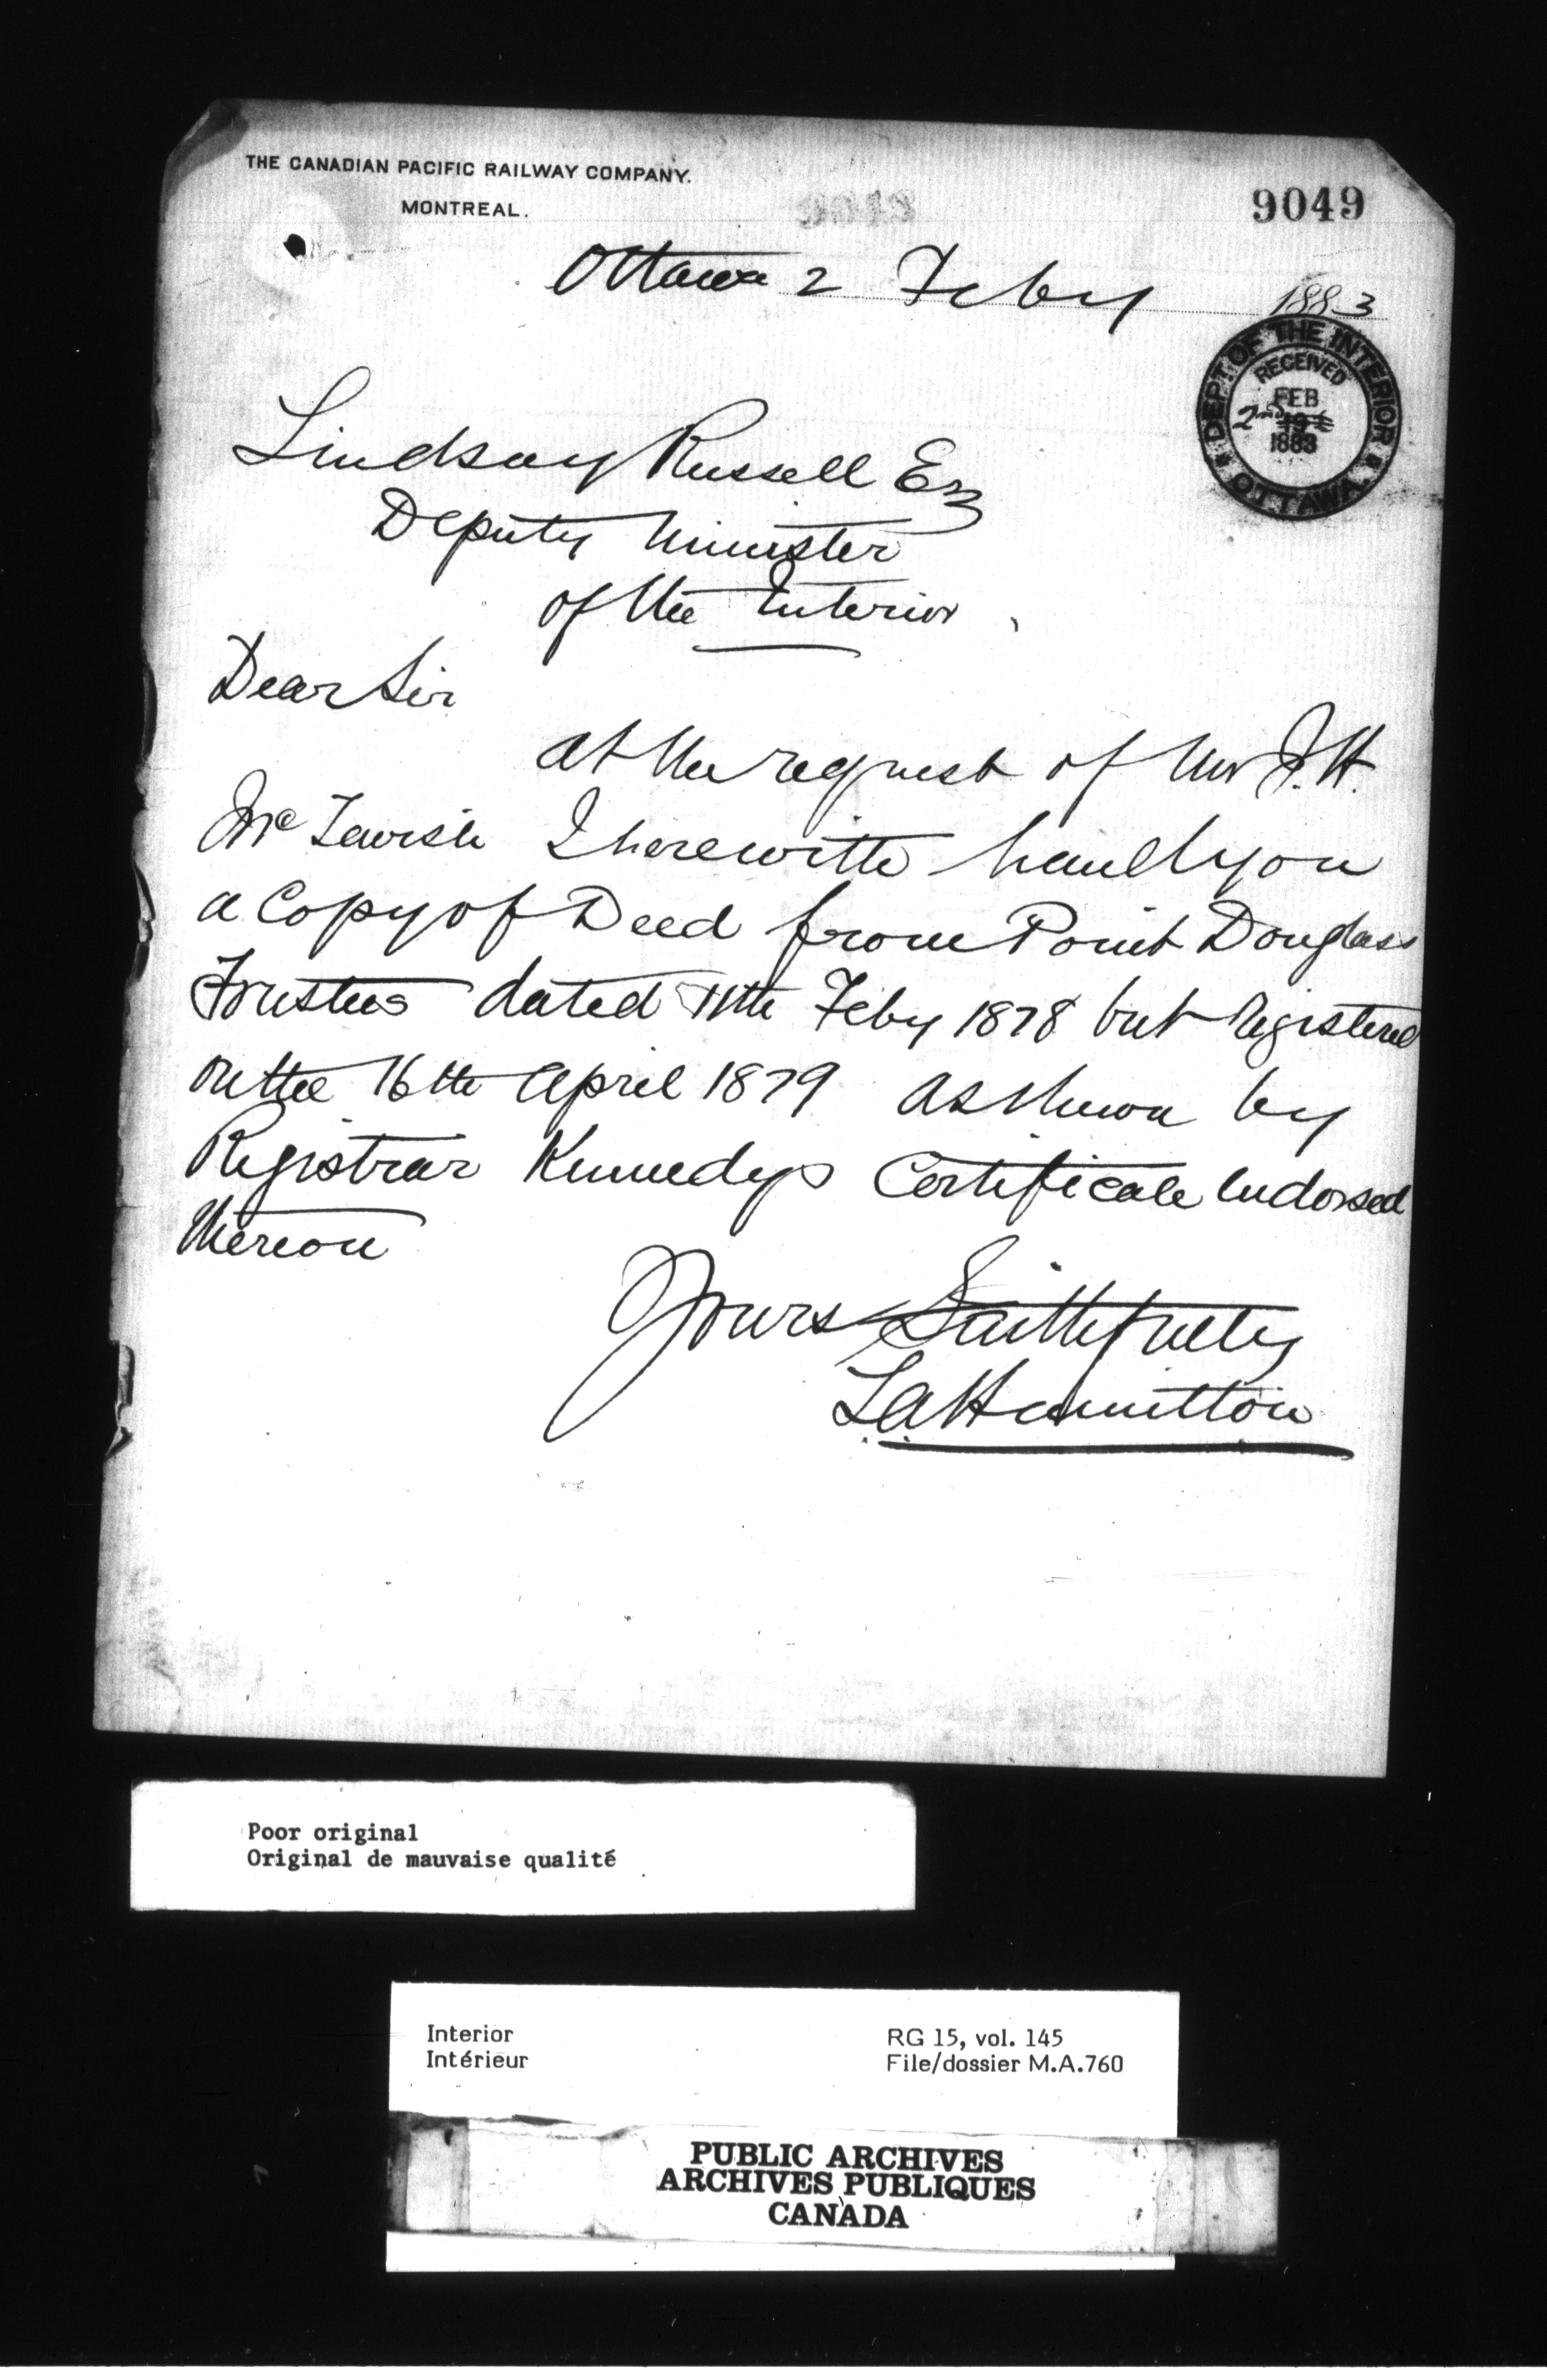 THE CANADIAN PACIFIC RAILWAY COMPANY.
MONTREAL.
9049
Ottawa 2 Feby 1883
DEPT OF THE INTERIOR
RECEIVED
FEB
2nd 19
1883
OTTAWA
Lindsay Russell Esq
Deputy Minister
of the Interior
Dear Sir
at the request of Mr J. H.
McTavish I herewith hand you
a Copy of Deed from Point Douglass
Trustees dated 11th Feby 1878 but Registered
on the 16th April 1879 as shewn by
Registrar Kennedys Certificate Endorsed
thereon
Yours Faithfully
L.A. Hamilton
Poor original
Original de mauvaise qualité
Interior
Intérieur
RG 15, vol. 145
File/dossier M.A.760
PUBLIC ARCHIVES
ARCHIVES PUBLIQUES
CANADA